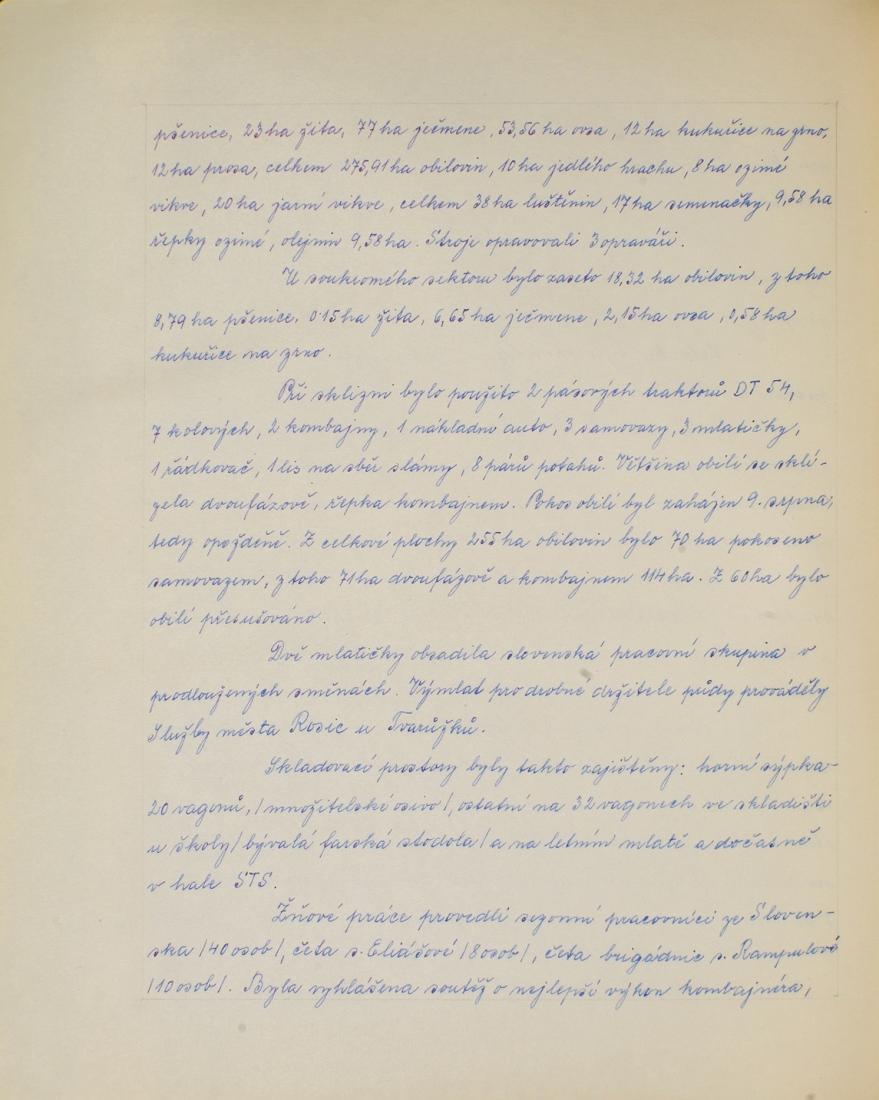 pšenice, 23 ha žita, 77 ha ječmene, 53,56 ha ovsa, 12 ha kukuřice na zrno,
12 ha prosa, celkem 275,91 ha obilovin, 10 ha jedlého hrachu, 8 ha ozimé
vikve, 20 ha jarní vikve, celkem 38 ha luštěnin, 17 ha semenačky, 9,58 ha
řepky ozimé, olejnin 9,58 ha. Stroje opravovali 3 opraváři.
U soukromého sektoru bylo zaseto 18,32 ha obilovin, z toho
8,79 ha pšenice, 0.15 ha žita, 6,65 ha ječmene, 2,15 ha ovsa, 0,58 ha
kukuřice na zrno.
Při sklizni bylo použito 2 pásových traktorů DT 54,
7 kolových, 2 kombajny, 1 nákladní auto, 3 samovazy, 3 mlatičky,
1 řádkovač, 1 lis na sběr slámy, 8 párů potahů. Většina obilí se skli-
zela dvoufázově, řepka kombajnem. Pokos obilí byl zahájen 9. srpna,
tedy opožděně. Z celkové plochy 255 ha obilovin bylo 70 ha pokoseno
samovazem, z toho 71 ha dvoufázově a kombajnem 114 ha. Z 60 ha bylo
obilí přesušováno.
Dvě mlatičky obsadila slovenská pracovní skupina v
prodloužených směnách. Výmlat pro drobné držitele půdy prováděly
Služby města Rosic u Tvarůžků.
Skladovací prostory byly takto zajištěny: horní sýpka-
20 vagonů, /množitelské osivo/, ostatní na 32 vagonech ve skladišti
u školy /bývalá farská stodola/ a na letním mlatě a dočasně
v hale STS.
Žňové práce provedli sezonní pracovníci ze Sloven-
ska /40 osob/, četa s. Eliášové /8 osob/, četa brigádnic s. Rampulové
/10 osob/. Byla vyhlášena soutěž o nejlepší výkon kombajnéra,